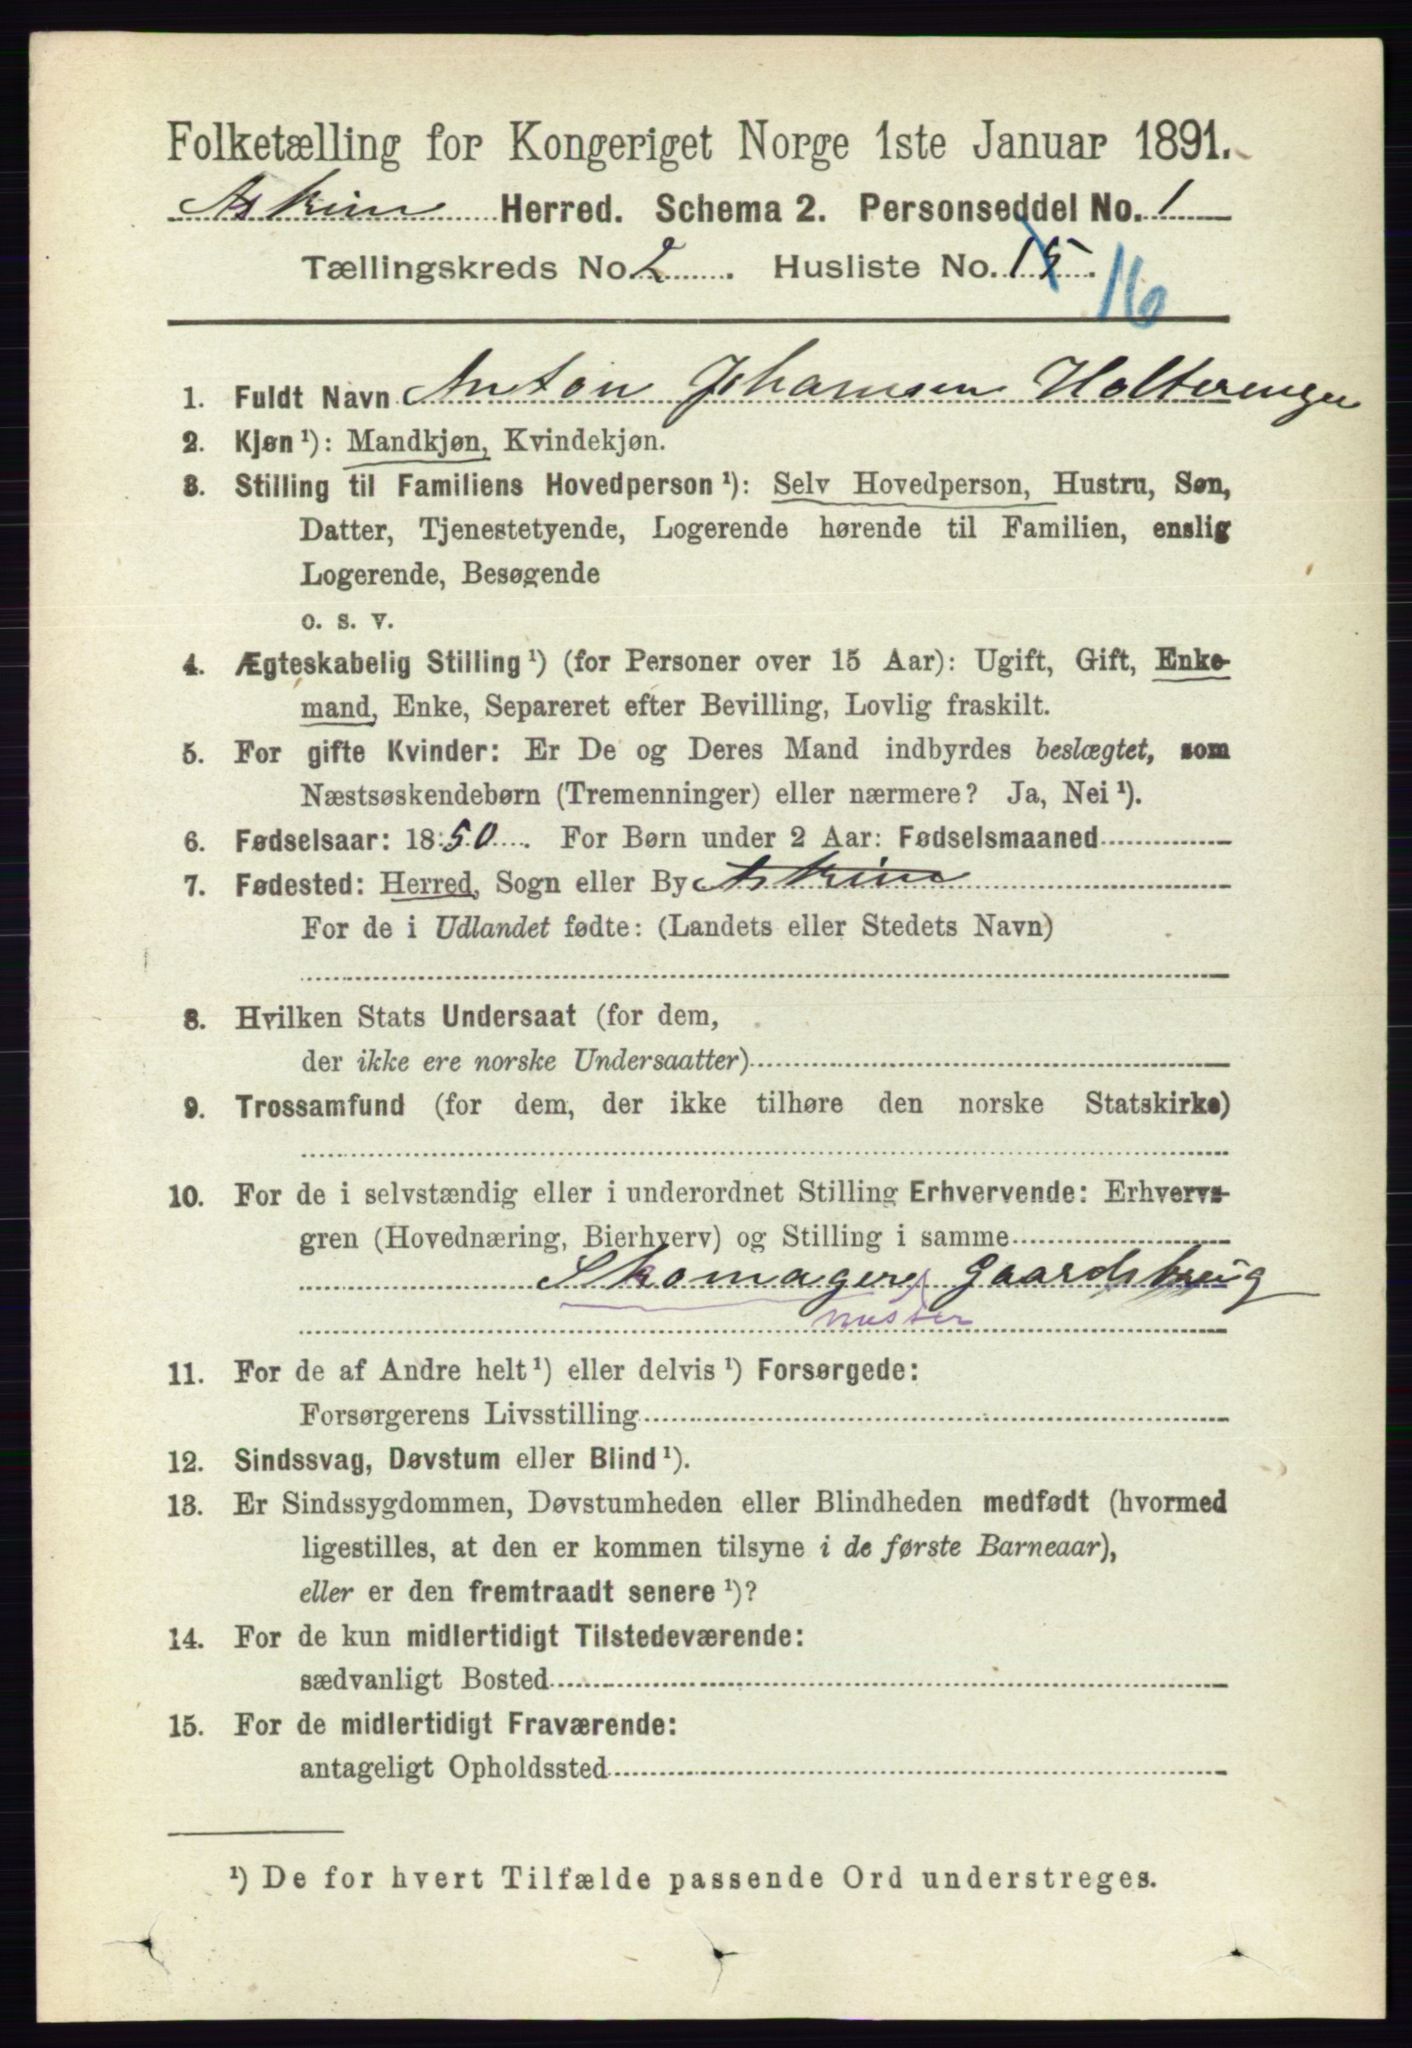 Folketælling for Kongeriget Norge 1ste Januar 1891.
Askim Herred. Schema 2. Personseddel No. 1
Tællingskreds No. 2. Husliste No. 15. 16
1. Fuldt Navn Anton Johansen Holterengen
2. Kjøn ¹): Mandkjøn, Kvindekjøn.
3. Stilling til Familiens Hovedperson ¹): Selv Hovedperson, Hustru, Søn,
Datter, Tjenestetyende, Logerende hørende til Familien, enslig
Logerende, Besøgende
o. s. v.
4. Ægteskabelig Stilling ¹) (for Personer over 15 Aar): Ugift, Gift, Enke-
mand, Enke, Separeret efter Bevilling, Lovlig fraskilt.
5. For gifte Kvinder: Er De og Deres Mand indbyrdes beslægtet, som
Næstsøskendebørn (Tremenninger) eller nærmere? Ja, Nei ¹).
6. Fødselsaar: 1850. For Børn under 2 Aar: Fødselsmaaned
7. Fødested: Herred, Sogn eller By Askim
For de i Udlandet fødte: (Landets eller Stedets Navn)
8. Hvilken Stats Undersaat (for dem,
der ikke ere norske Undersaatter)
9. Trossamfund (for dem, der ikke tilhøre den norske Statskirke)
10. For de i selvstændig eller i underordnet Stilling Erhvervende: Erhvervs-
gren (Hovednæring, Bierhverv) og Stilling i samme
Skomager Gaardsbrug
mester
11. For de af Andre helt ¹) eller delvis ¹) Forsørgede:
Forsørgerens Livsstilling
12. Sindssvag, Døvstum eller Blind ¹).
13. Er Sindssygdommen, Døvstumheden eller Blindheden medfødt (hvormed
ligestilles, at den er kommen tilsyne i de første Barneaar),
eller er den fremtraadt senere ¹)?
14. For de kun midlertidigt Tilstedeværende:
sædvanligt Bosted
15. For de midlertidigt Fraværende:
antageligt Opholdssted
¹) De for hvert Tilfælde passende Ord understreges.